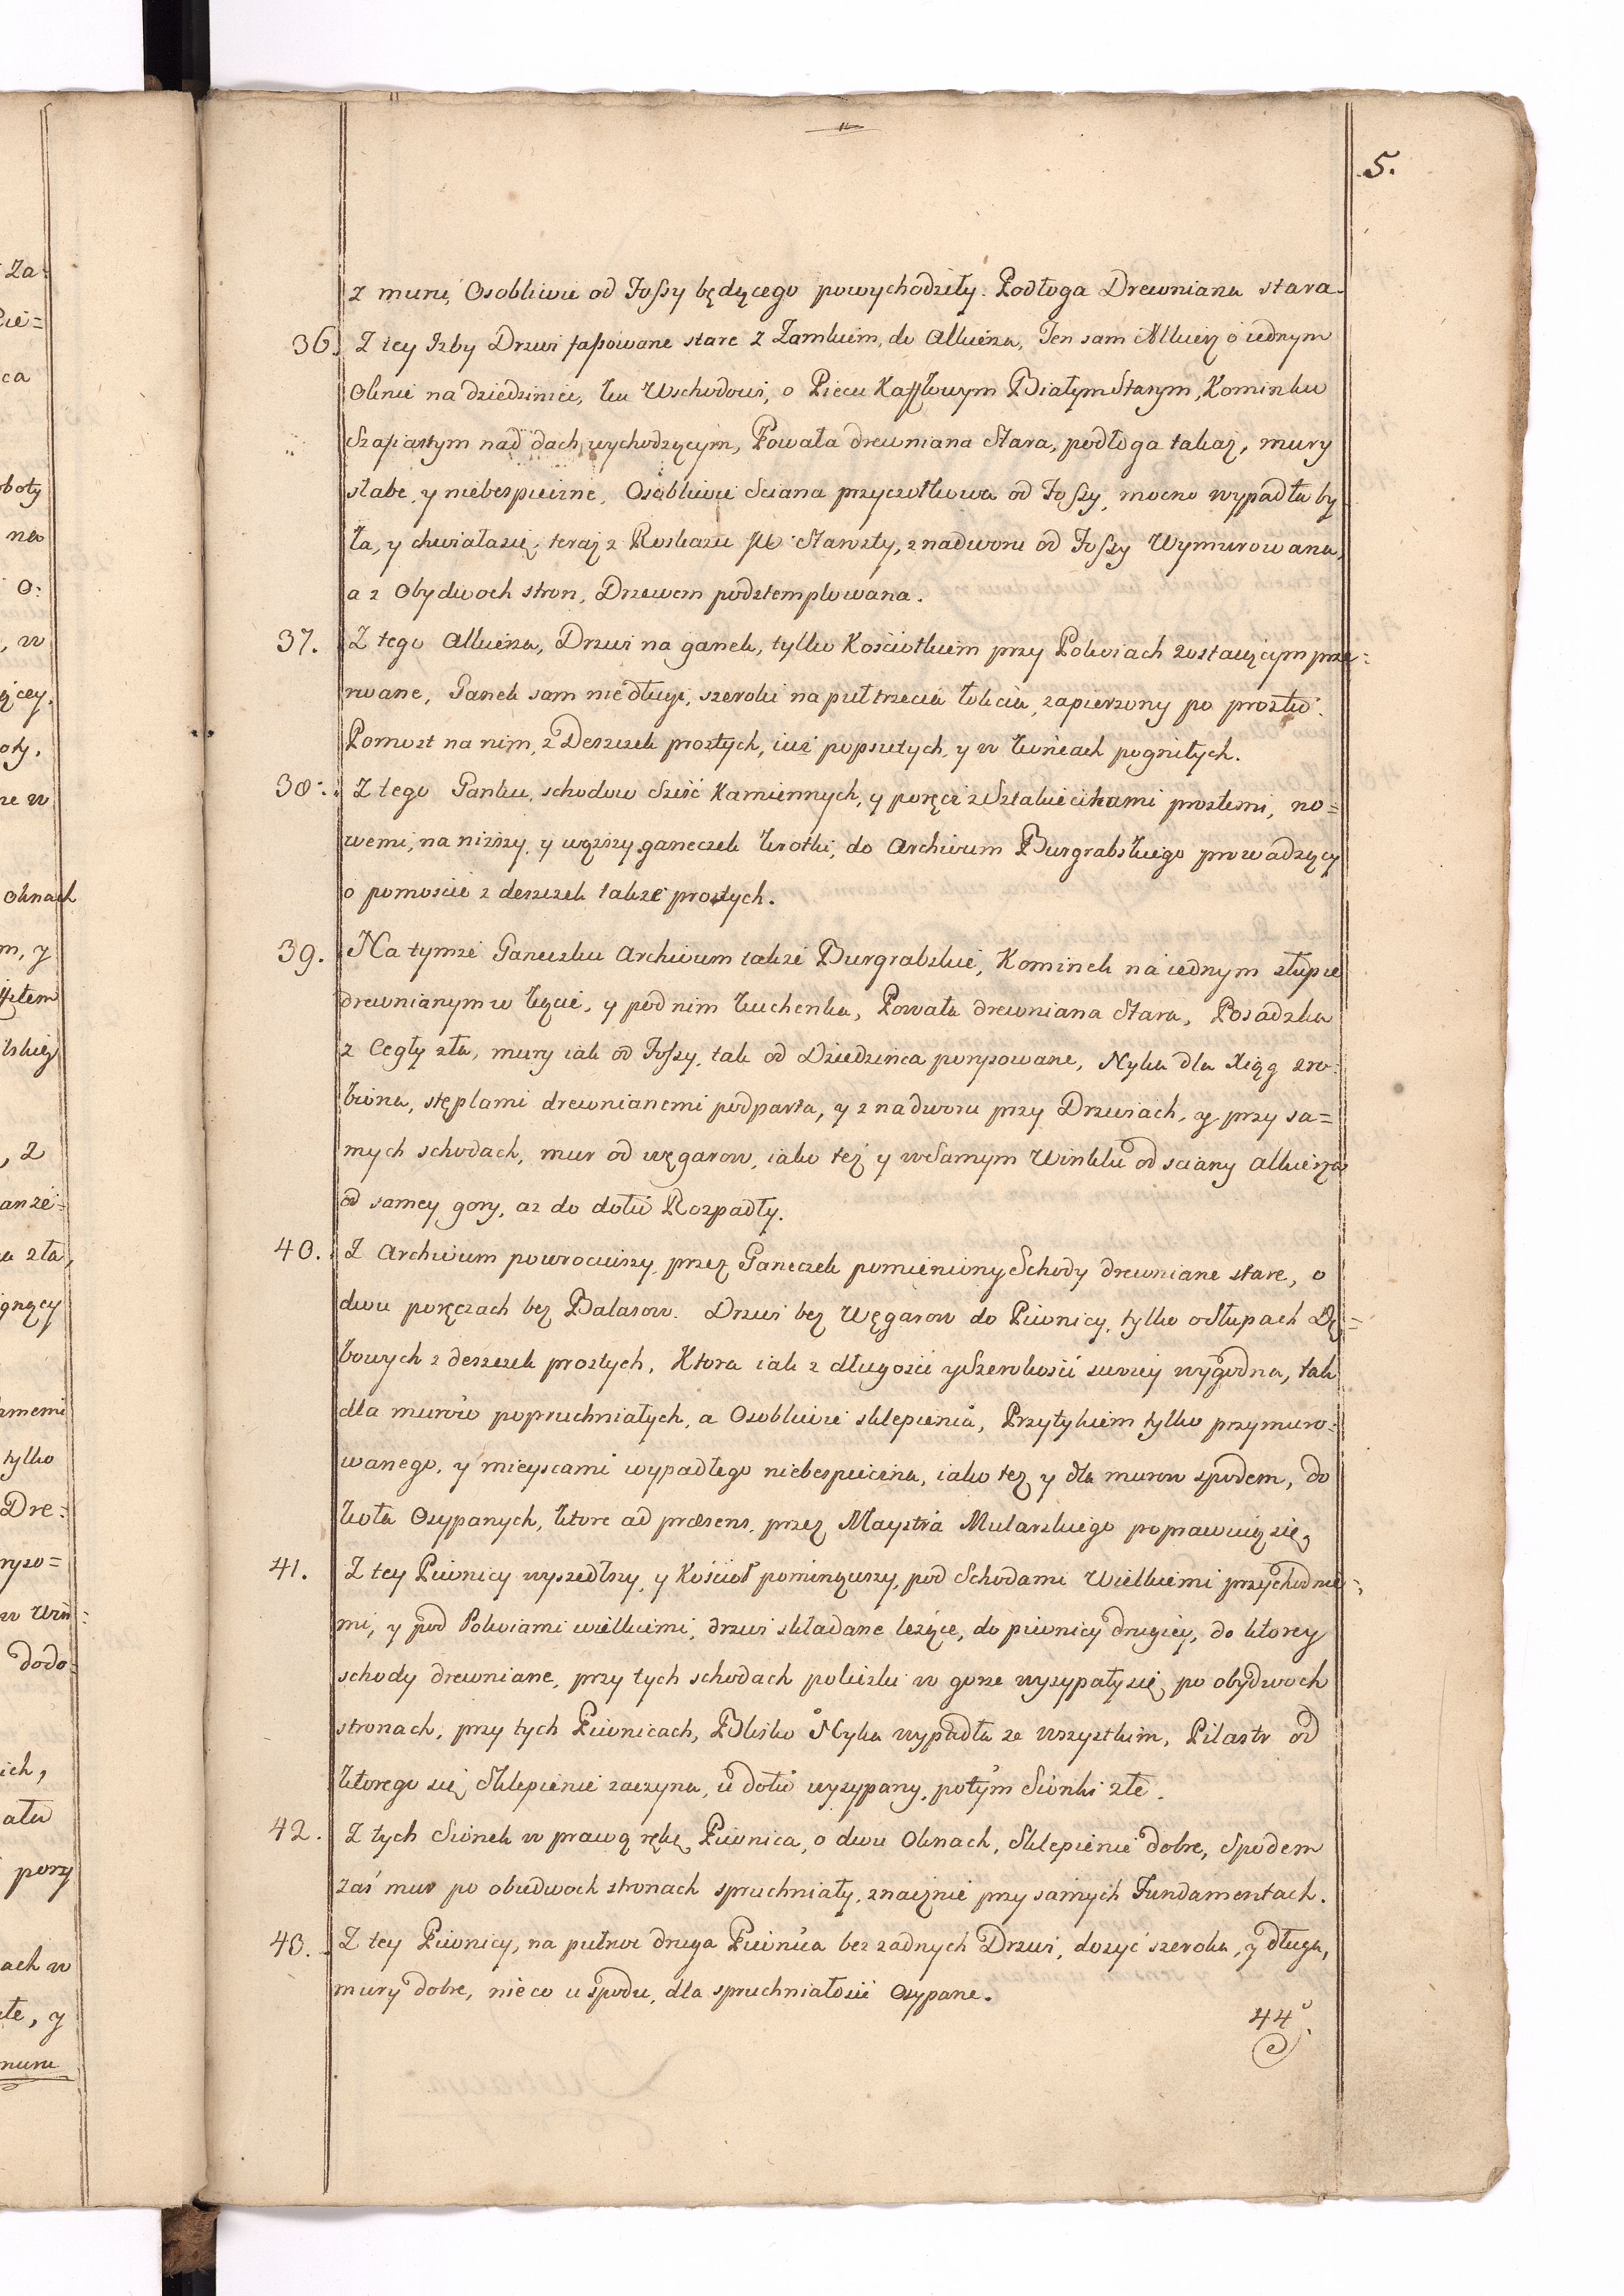 5.
z muru, Osobliwie od Fossy będącego powychodziły. Podłoga Drewniana stara.
36. Z tey Izby Drzwi fasowane stare z Zamkiem, do Alkierza, Ten sam Alkierz o iednym
Oknie na dziedziniec, ku Wschodowi, o Piecu Kafflowym Białym Starym, Kominku
Szafiastym nad dach wychodzącym, Powała drewniana Stara, podłoga takaż, mury
słabe, y niebespieczne, Osobliwie Sciana przyczołkowa od Fossy, mocno wypadła by
ła, y chwiała się, teraz z Roskazu Starosty, z nadworu od Fossy Wymurowana,
a z Obydwoch stron, Drzewem podstemplowana.
37. Z tego Alkierza, Drzwi na ganek, tylko Kościołkiem przy Pokoiach zostaiącym prze=
rwane, Ganek sam nie długi, szeroki na puł trzecia łokcia, zapierzony po prostu.
Pomost na nim, z Deszczek prostych, iuż popsutych, y w końcach pogniłych.
38. Z tego Ganku, schodow sześć Kamiennych, y poręcz z Sztakiecikami prostemi, no=
wemi, na niższy, y węższy ganeczek krotki, do Archivum Burgrabskiego prowadzący
o pomoście z deszczek także prostych.
39. Na tymże Ganeczku Archivum także Burgrabskie, Kominek na iednym słupie
drewnianym w kącie, y pod nim kuchenka, Powała drewniana Stara, Posadzka
z Cegły zła, mury iak od Fossy, tak od Dziedzińca porysowane, Nyka dla Xiąg zro=
biona, stęplami drewnianemi podparta, y z nadworu przy Drzwiach, y przy sa=
mych schodach, mur od węgarow, iako też y w Samym Winklu od sciany Alkierza
od samey gory, aż do dołu Rozpadły.
40. Z Archivum powrociwszy, przez Ganeczek pomieniony Schody drewniane stare, o
dwu poręczach bez Balasow. Drzwi bez Węgarow do Piwnicy, tylko o Słupach Dę=
bowych z deszczek prostych, Ktora iak z długości y Szerokości swoiey wygodna, tak
dla murow popruchniałych, a Osobliwie sklepienia, Przytykiem tylko przymuro=
wanego, y mieyscami wypadłego niebespieczna, iako tez y dla murow spodem, do
koła Osypanych, ktore ad præsens, przez Maystra Mularskiego poprawuią się,
41. Z tey Piwnicy wyszedłszy, y Kościoł pominąwszy, pod Schodami Wielkiemi przychodnie=
mi, y pod Pokoiami wielkiemi, drzwi składane leżące, do piwnicy drugiey, do ktorey
schody drewniane, przy tych schodach policzki w gorze wysypały się po obydwoch
stronach, przy tych Piwnicach, Blisko Nyka wypadła ze wszystkim, Pilastr od
ktorego się Sklepienie zaczyna, u dołu wysypany, potym Sionki złe.
42. Z tych Sionek w prawą rękę Piwnica, o dwu Oknach, Sklepienie dobre, Spodem
zaś mur po obudwoch stronach spruchniały, znacznie przy samych Fundamentach.
43. Z tey Piwnicy, na pułnoc druga Piwnica bez żadnych Drzwi, dosyć szeroka, y długa,
mury dobre, nieco u spodu, dla spruchniałości Osypane.
44